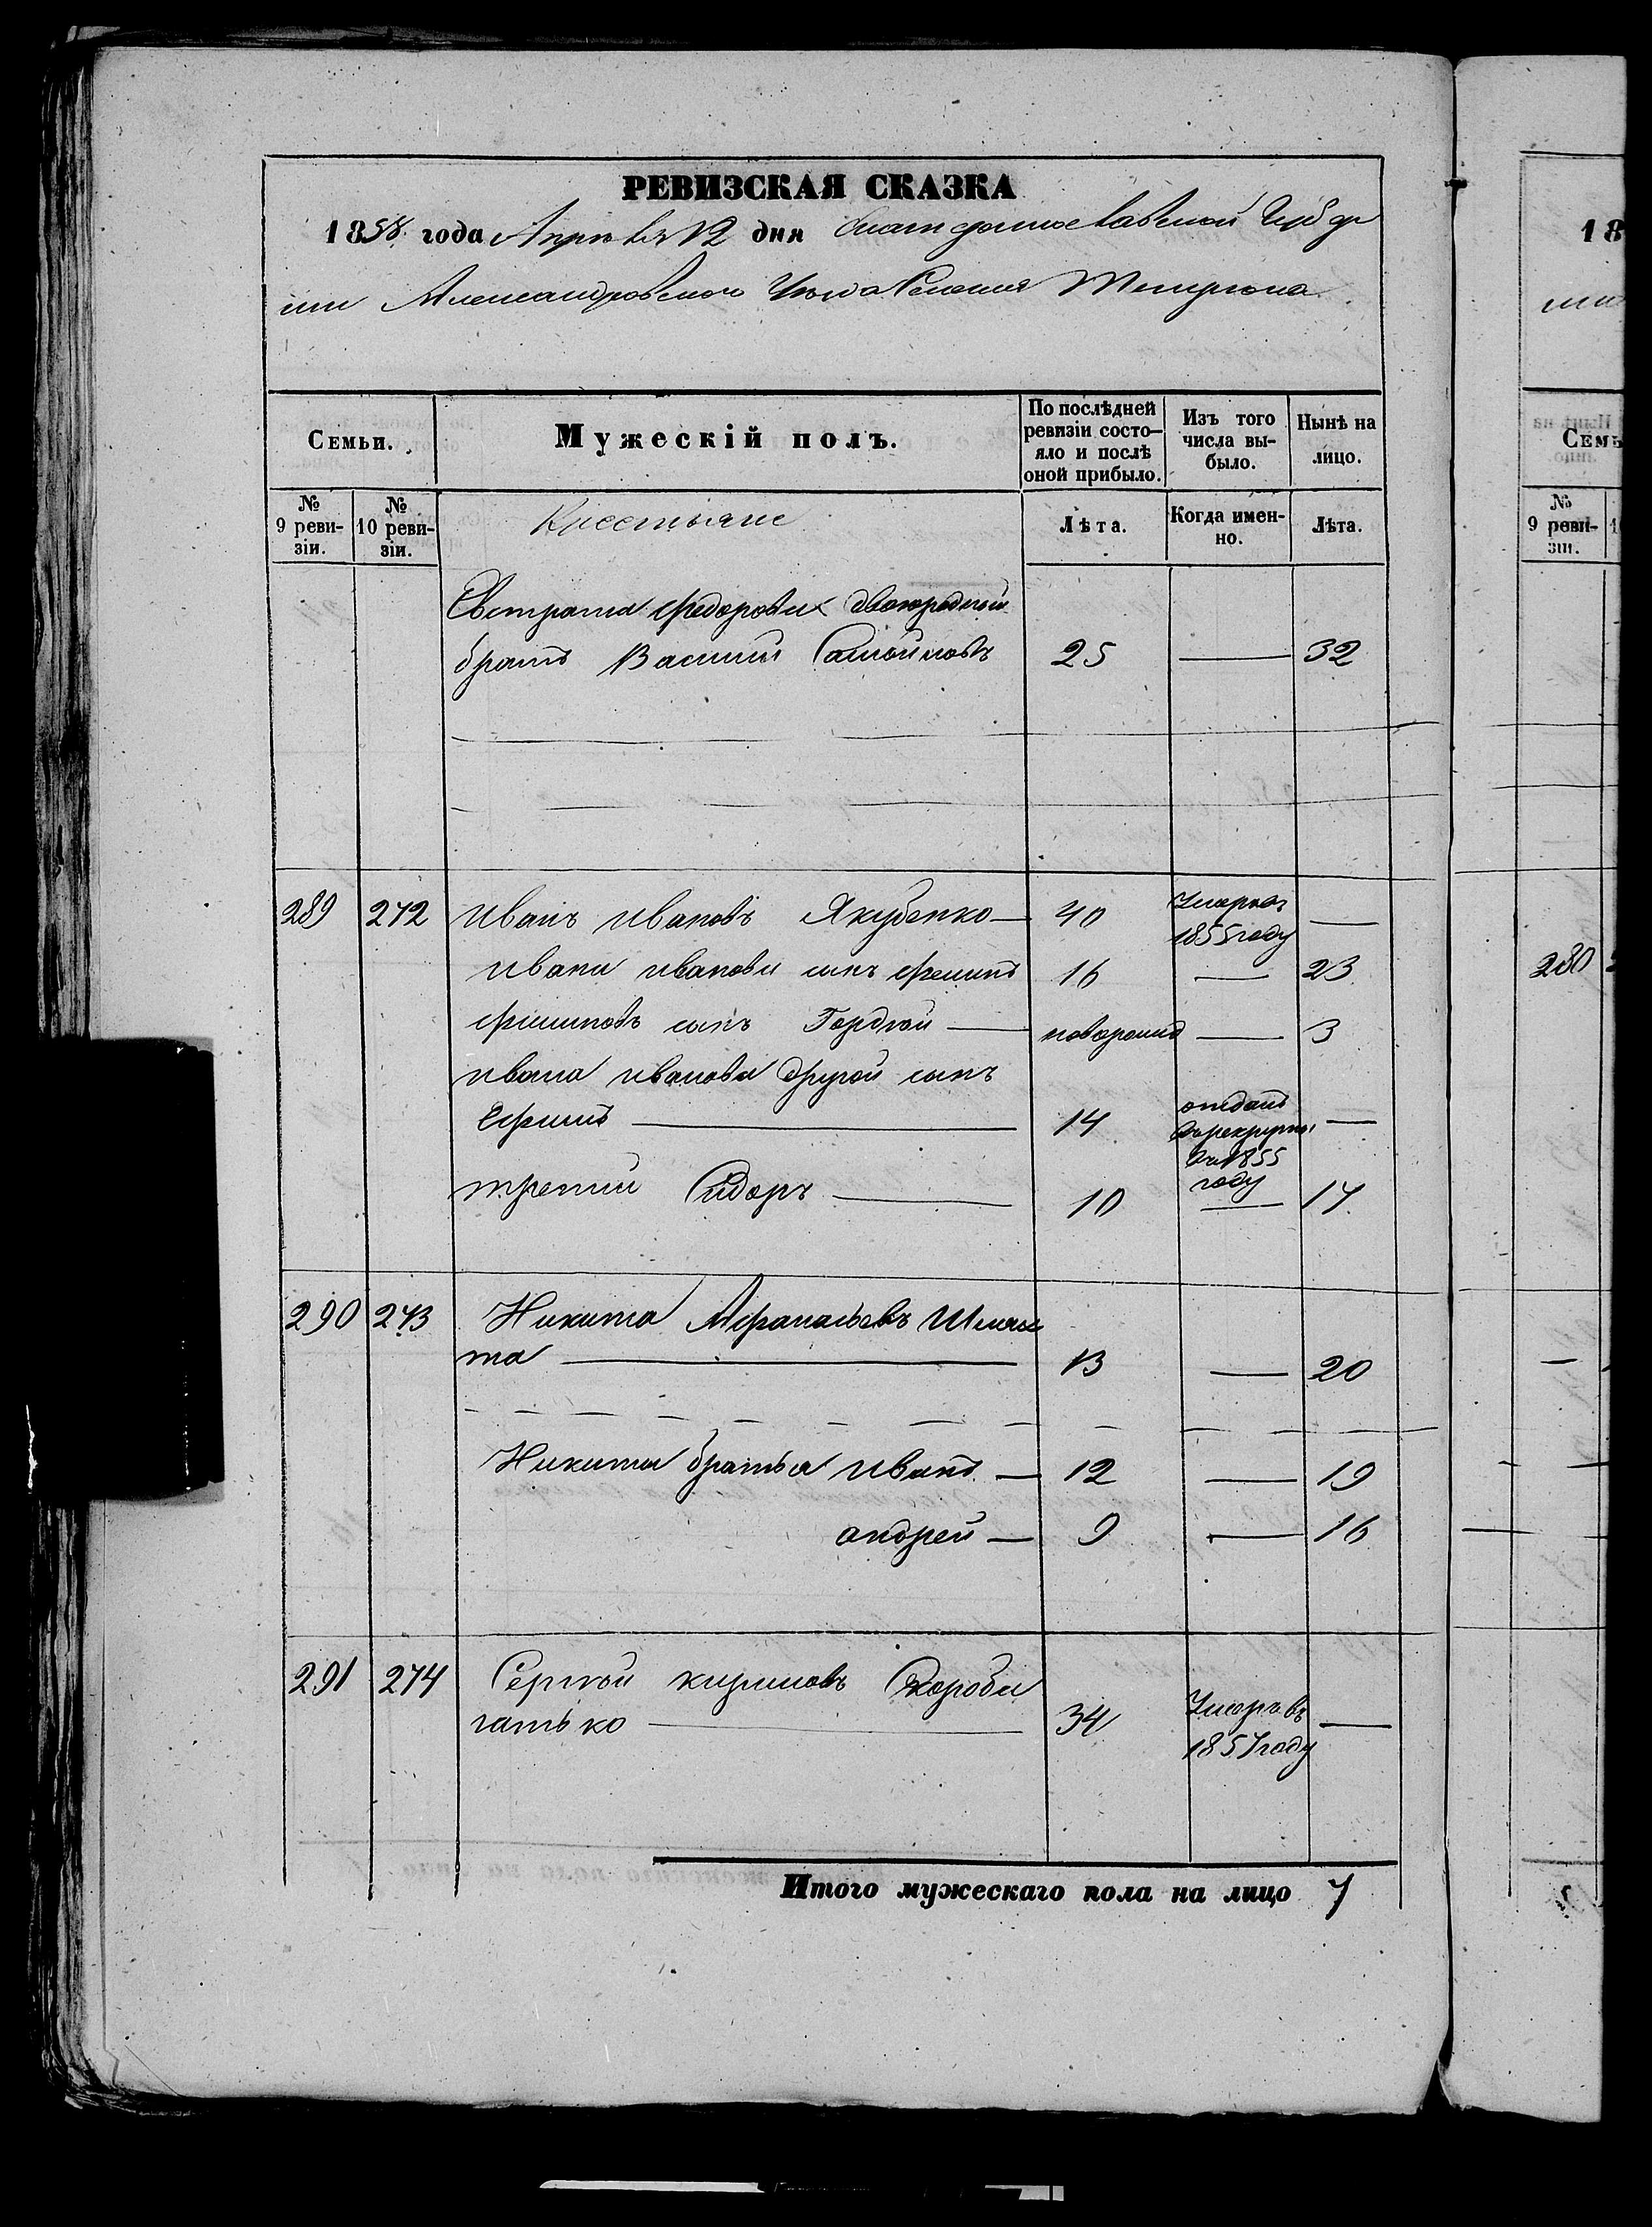 РЕВИЗСКАЯ СКАЗКА
1858 года Апреля 12 дня Екатеринославской Губер
нии Александровского Уезда Селения Темрюка
Семьи. Мужескій полъ. По послѣдней ревизіи состо-яло и послѣ оной прибыло. Изъ того числа вы-было. Нынѣ на лицо.
№ 9 реви-зіи. № 10 реви-зіи. Крестьяне Лѣта. Когда имен-но. Лѣта.
Евстрата Федорова двоюродный
братъ Василий Самойловъ 25 — 32
289 272 Иванъ Ивановъ Якубенко — 40 Умеръ въ 1855 году —
Ивана Иванова сынъ Филипъ 16 — 23
Филиповъ сынъ Гордѣй — новорожд — 3
Ивана Иванова другой сынъ
Ефимъ — 14 отданъ въ рекруты въ 1855 году —
третий Сидоръ — 10 — 17
290 273 Никита Афанасьевъ Шлях
та — 13 — 20
Никиты братья Иванъ — 12 — 19
Андрей — 9 — 16
291 274 Сергѣй Кириловъ Скороба
гатько — 34 Умеръ въ 1857 году —
Итого мужескаго пола на лицо 7
18
Семь
№ 9 реви-зіи.
280